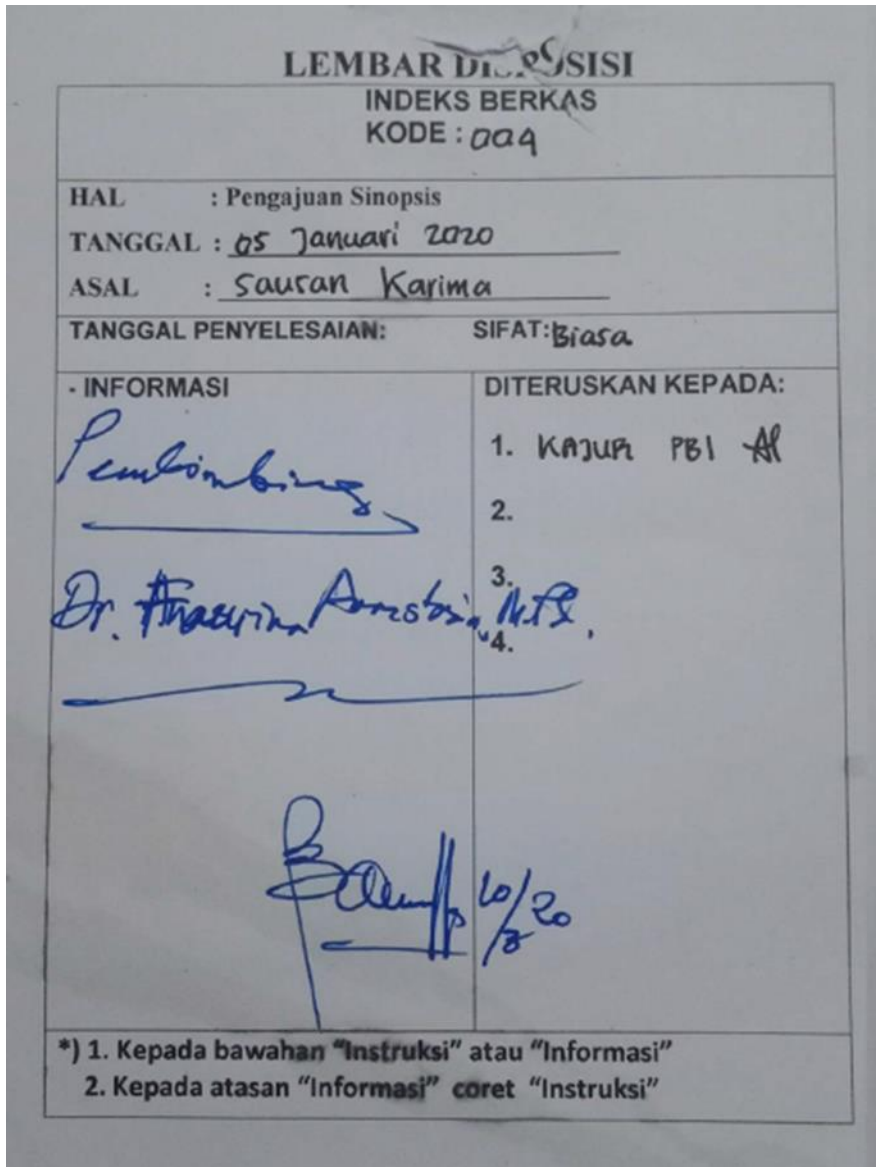 LEMBAR DISPOSISI
INDEKS BERKAS
KODE : 009
HAL : Pengajuan Sinopsis
TANGGAL : 05 Januari 2020
ASAL : Sauran Karima
TANGGAL PENYELESAIAN: SIFAT: Biasa
- INFORMASI
Pembimbing
Dr.
DITERUSKAN KEPADA:
1. KAJUR PBI
2.
3.
4.
*) 1. Kepada bawahan “Instruksi” atau “Informasi”
2. Kepada atasan “Informasi” coret “Instruksi”